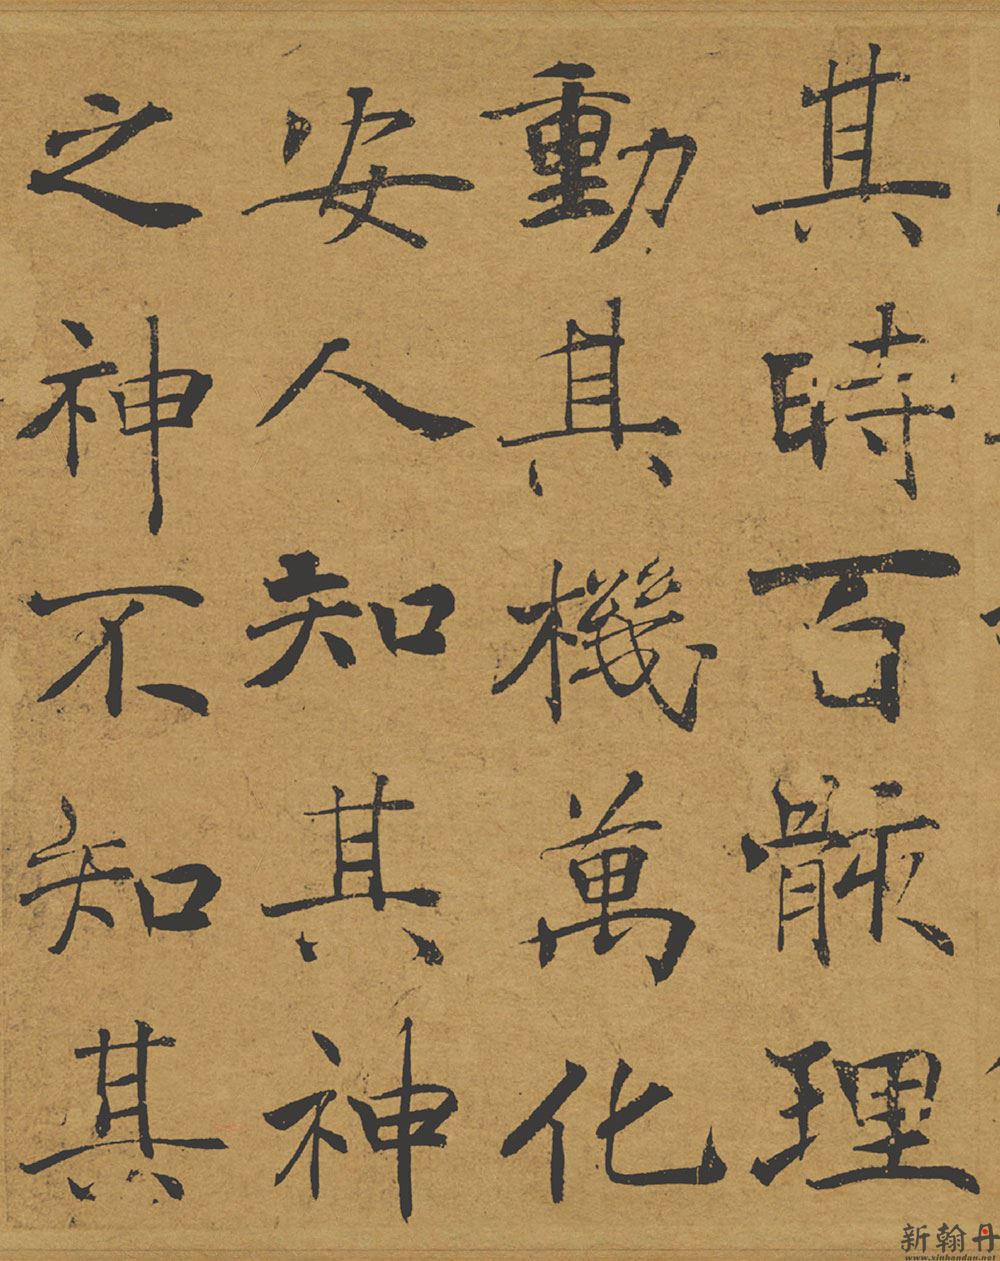 其時百骸理
動其機萬化
安人知其神
之神不知其
新翰丹
www.xinhandan.net